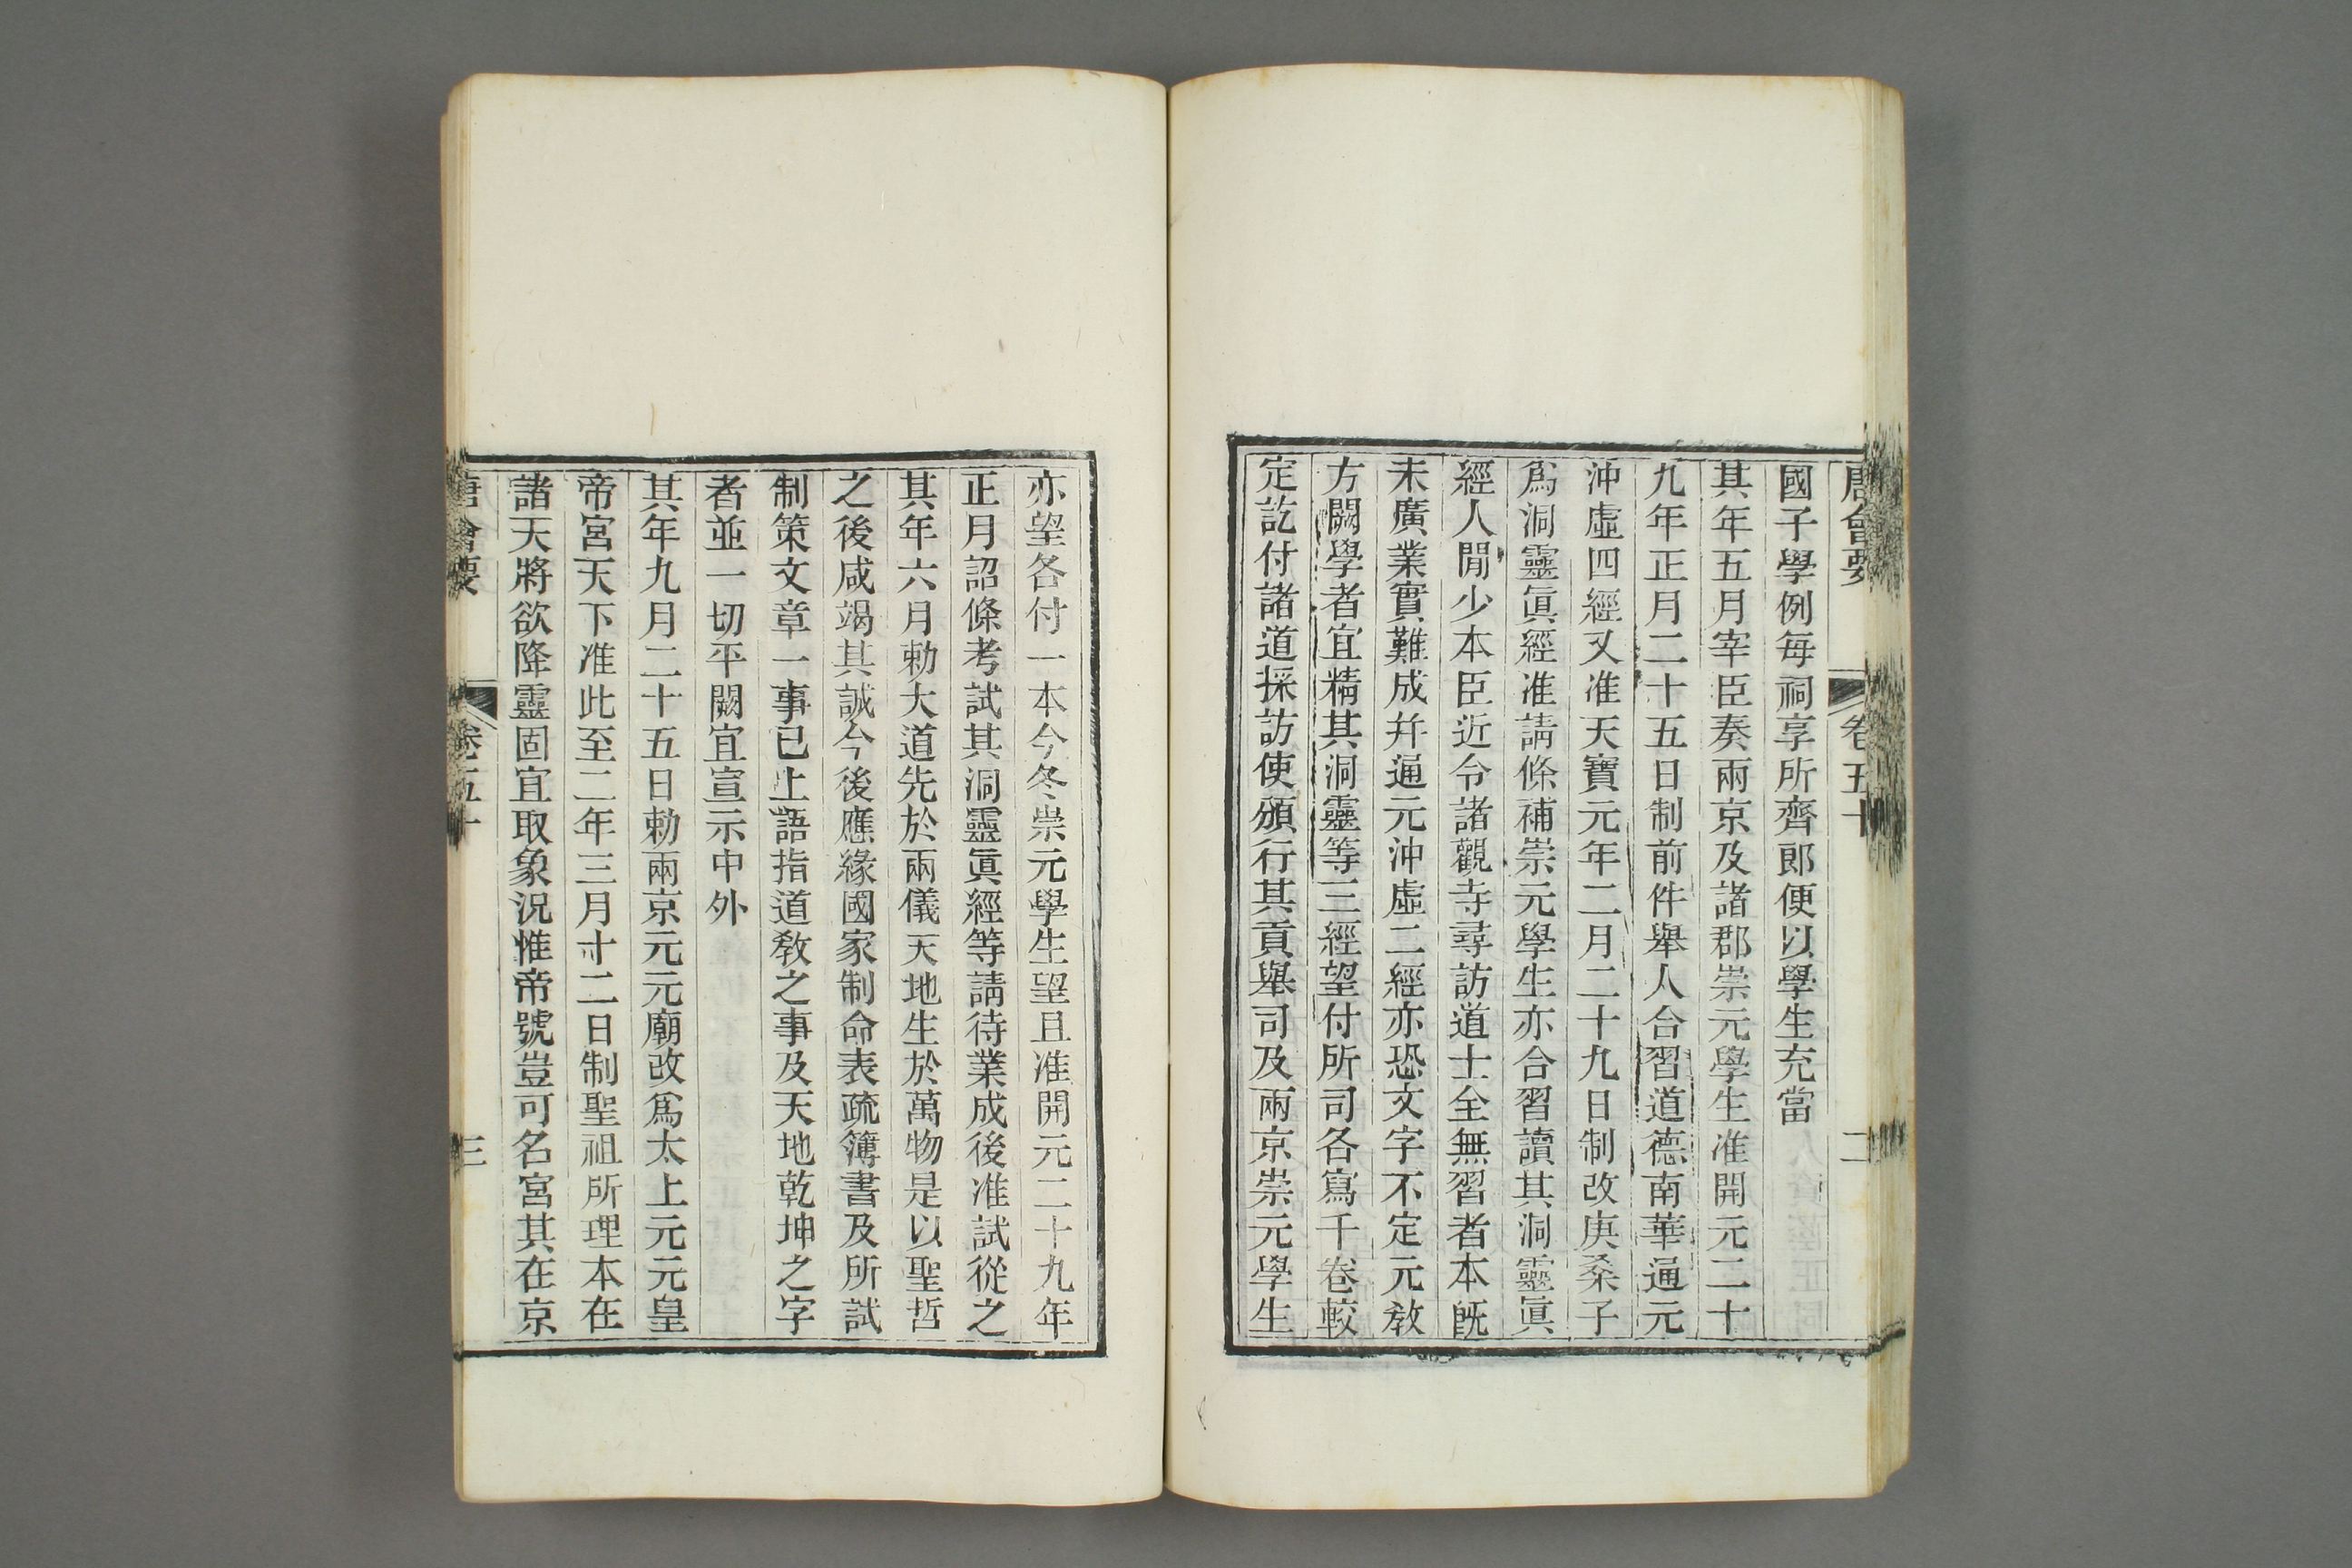 唐會要 卷五十 二
國子學例每祠享所齊郎便以學生充當
其年五月宰臣奏兩京及諸郡崇元學生准開元二十
九年正月二十五日制前件舉人合習道德南華通元
沖虛四經又准天寶元年二月二十九日制改庚桑子
爲洞靈眞經准請條補崇元學生亦合習讀其洞靈眞
經人閒少本臣近令諸觀寺尋訪道士全無習者本旣
未廣業實難成幷通元沖虛二經亦恐文字不定元敎
方闕學者宜精其洞靈等三經望付所司各寫千卷較
定訖付諸道採訪使頒行其貢舉司及兩京崇元學生
亦望各付一本今冬崇元學生望且准開元二十九年
正月詔條考試其洞靈眞經等請待業成後准試從之
其年六月勅大道先於兩儀天地生於萬物是以聖哲
之後咸竭其誠今後應緣國家制命表疏簿書及所試
制策文章一事已上語指道敎之事及天地乾坤之字
者並一切平闕宜宣示中外
其年九月二十五日勅兩京元元廟改爲太上元元皇
帝宮天下准此至二年三月十二日制聖祖所理本在
諸天將欲降靈固宜取象況惟帝號豈可名宮其在京
唐會要 卷五十 三